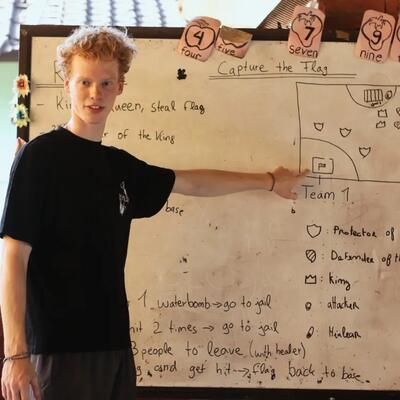 4 four
five
7 seven
9 nine
R
Capture the Flag
- Ki ueen, steal flag
r of the King
base
Team 1
: Protector of
: Defender of th
: King
: attacker
: Healear
1 waterbomb → go to jail
hit 2 times → go to jail
3 people to leave (with healer)
g and get hit → flag back to base